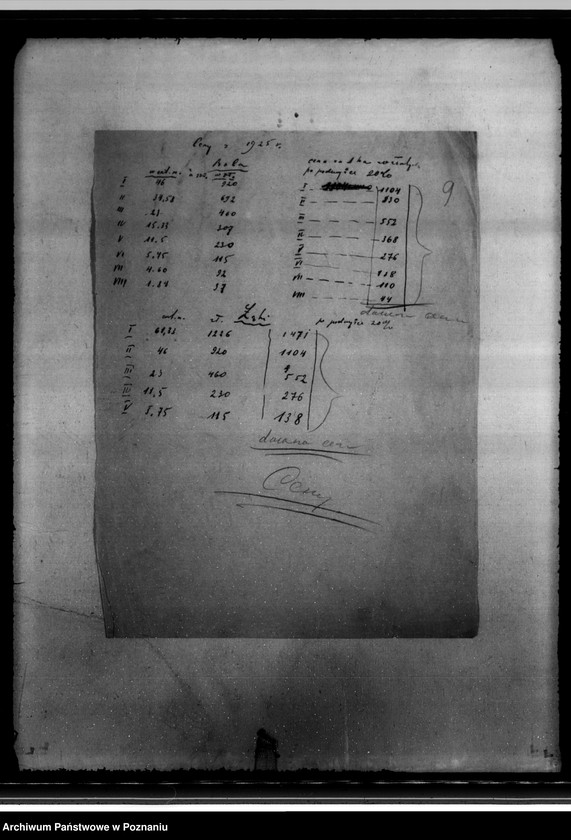 Ceny z 1925 r.
Rola
cena za 1 ha
po podwyżce 20%
9
I 46 920 I 1104
II 34,58 692 II 830
III 23 460 III 552
IV 15.33 307 IV 368
V 11,5 230 V 276
VI 5.75 115 VI 138
VII 4.60 92 VII 110
VIII 1.84 37 VIII 44
dawna cena
zł. Łąki po podwyżce 20%
I 61,33 1226 1471
II 46 920 1104
III 23 460 552
IV 11,5 230 276
V 5,75 115 138
dawna cena
Ceny
Archiwum Państwowe w Poznaniu